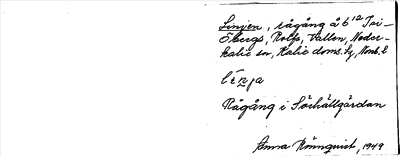 Linjen, rågång å 6 1a Tri-
Öbergs, Rolfs, Vallen, Neder-
Kalix sn, Kalix doms. by, Norrb. l
lìnja
Rågång i Sörhällgårdan
Anna Rönnquist, 1949